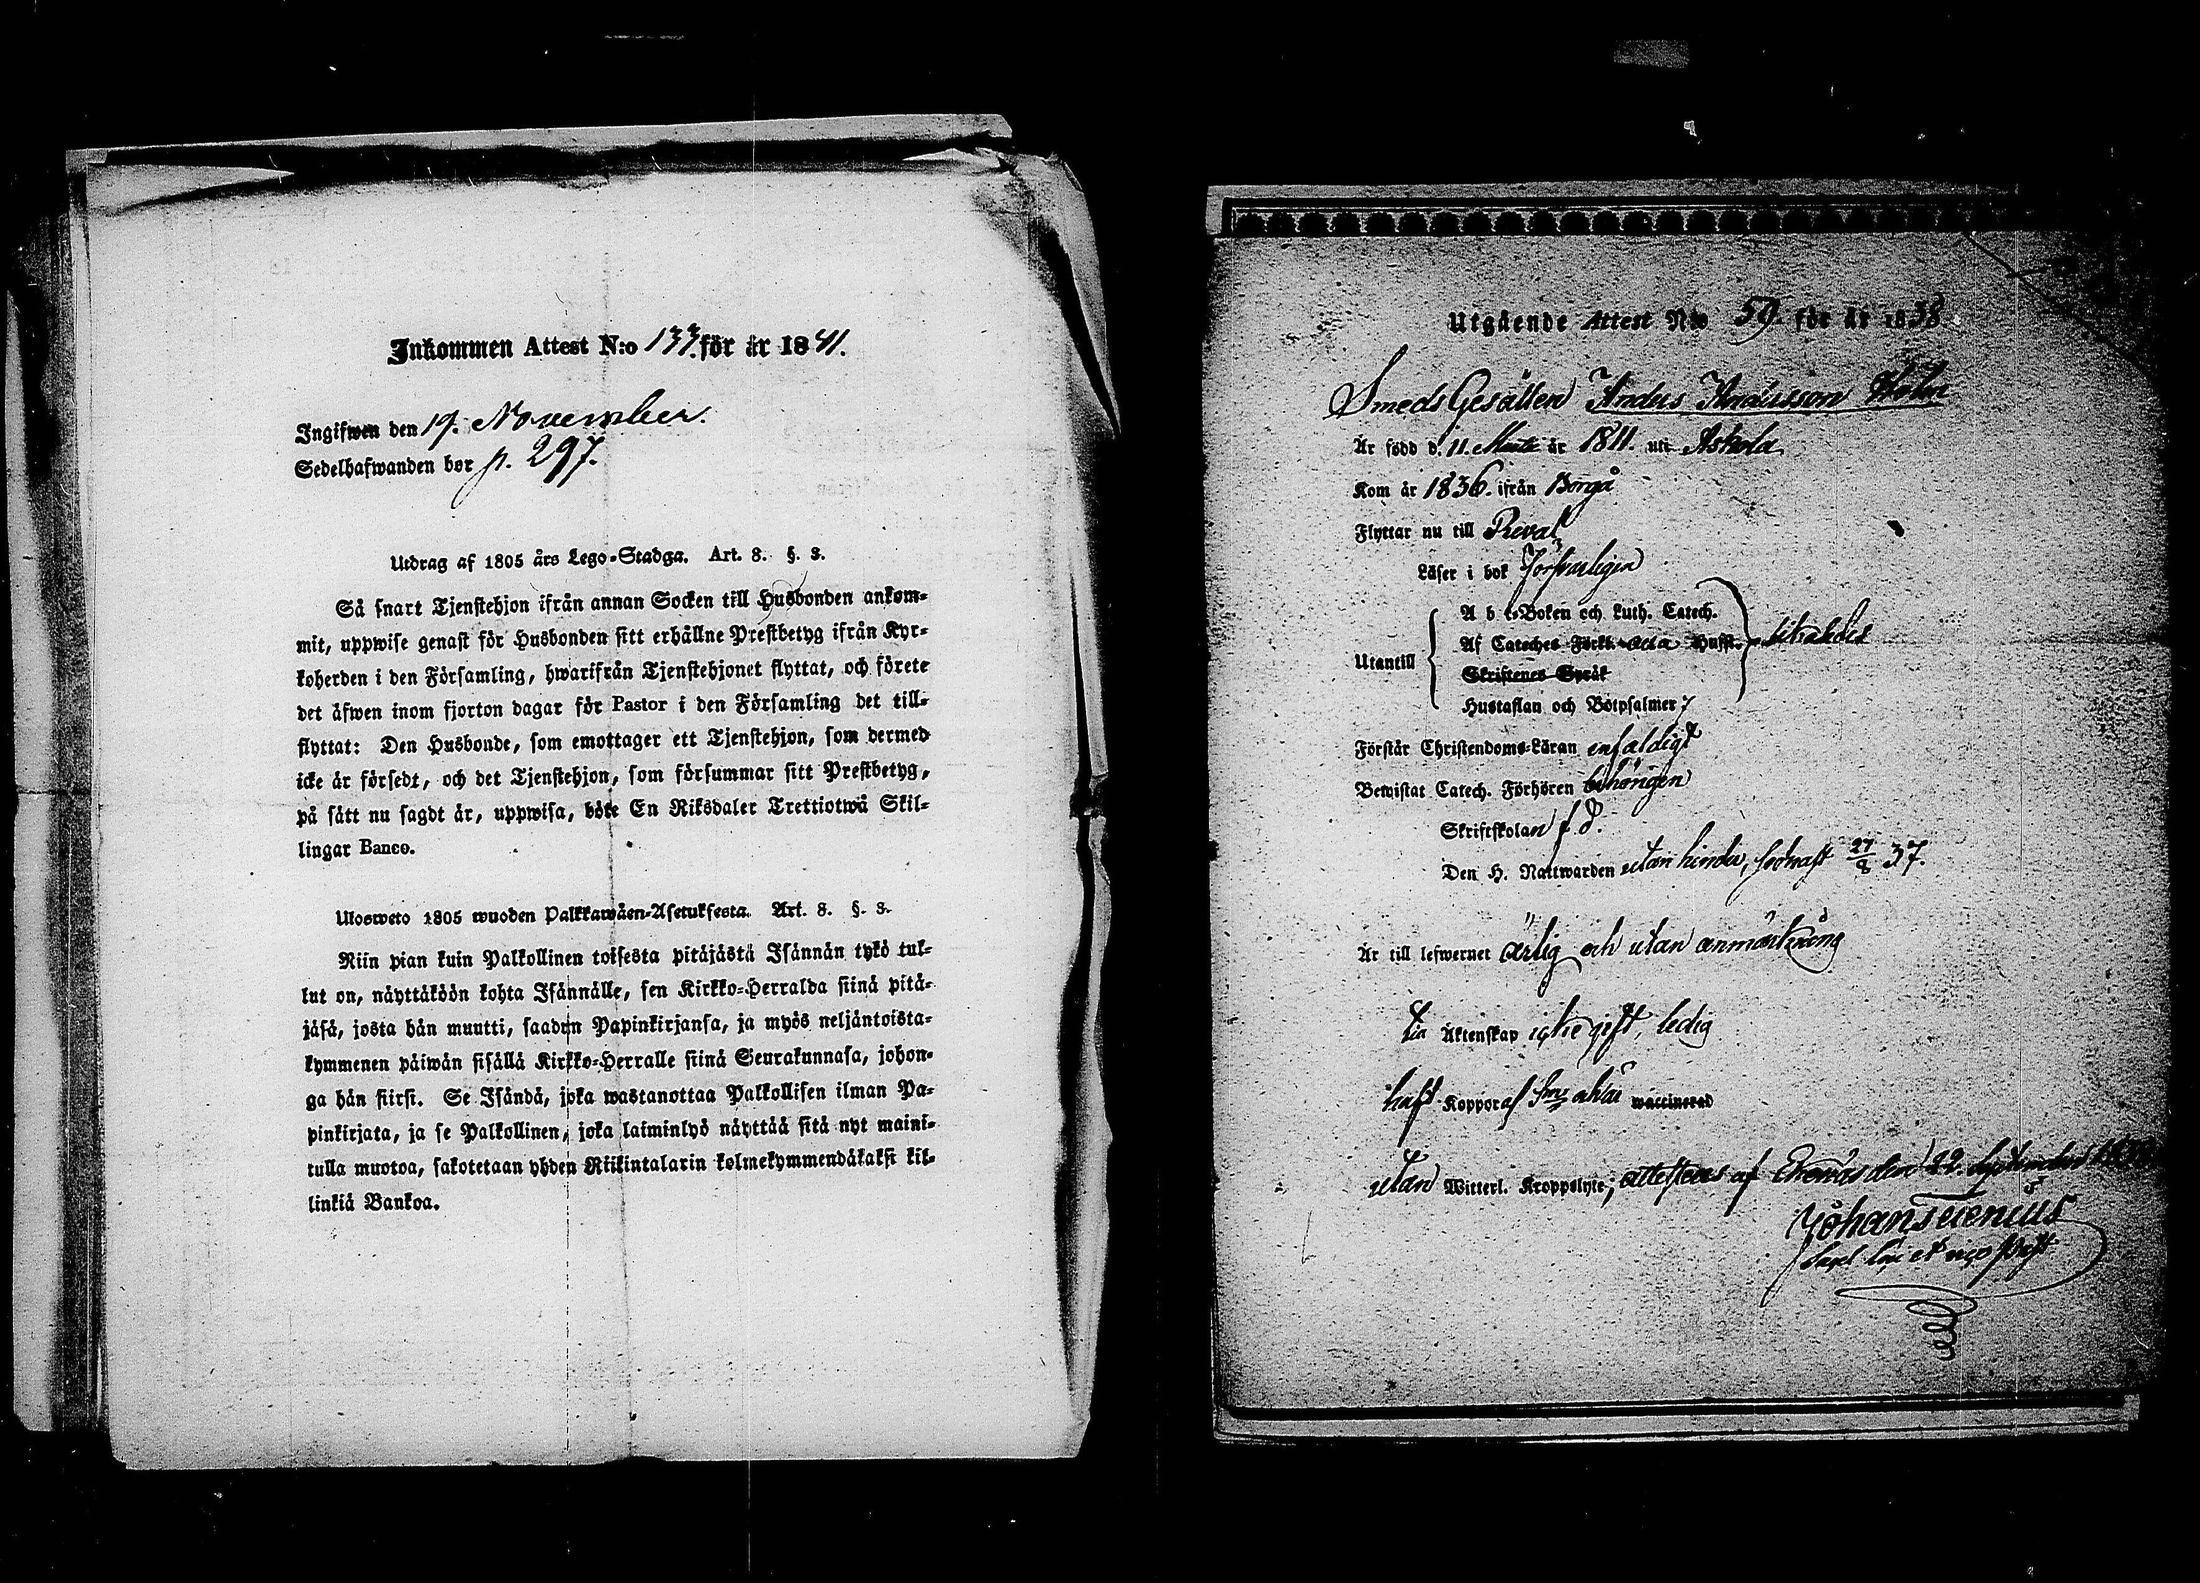 Inkommen Attest N:o 133. för år 1841.
Ingifwen den 19. November.
Sedelhafwanden bor p. 297.
Utdrag af 1805 års Lego-Stadga. Art. 8. §. 3.
Så snart Tjenstehjon ifrån annan Socken till Husbonden ankom-
mit, uppwise genast för Husbonden sitt erhållne Prestbetyg ifrån Kyr-
koherden i den Församling, hwarifrån Tjenstehjonet flyttat, och förete
det äfwen inom fjorton dagar för Pastor i den Församling det till-
flyttat: Den Husbonde, som emottager ett Tjenstehjon, som dermed
icke är försedt, och det Tjenstehjon, som försummar sitt Prestbetyg,
på sätt nu sagdt är, uppwisa, böte En Riksdaler Trettiotwå Skil-
lingar Banco.
Ulosweto 1805 wuoden Palkkawäen-Asetuksesta. Art. 8. §. 3.
Niin pian kuin Palkollinen toisesta pitäjästä Isännän tykö tul-
lut on, näyttäköön kohta Isännälle, sen Kirkko-Herralda siinä pitä-
jäsä, josta hän muutti, saadun Papinkirjansa, ja myös neljäntoista-
kymmenen päiwän sisällä Kirkko-Herralle siinä Seurakunnasa, johon-
ga hän siirsi. Se Isändä, joka wastanottaa Palkollisen ilman Pa-
pinkirjata, ja se Palkollinen, joka laiminlyö näyttää sitä nyt maini-
tulla muotoa, sakotetaan yhden Riikintalarin kolmekymmendäkaksi kil-
linkiä Bankoa.
Utgående Attest N:o 59. för år 1838
Smeds Gesällen Anders Andersson Holm
Är född d. 11. Martii år 1811. uti Askola
Kom år 1836. ifrån Borgå
Flyttar nu till Reval
Läser i bok försvarligen
A b c-Boken och Luth. Catech.
Utantill Af Cateches Förkl. Husst.
Skriftenes Språk
Hustaflan och Botpsalmer 7
Förstår Christendoms-Läran enfaldigt
Bewistat Catech. Förhören behörigen
Skriftskolan f. d.
Den H. Nattwarden utan hinder, sednast 27/8 37.
Är till lefwernet ärlig och utan anmärkning
Till Äktenskap icke gift, ledig
haft Koppor waccinerad
utan Witterl. Kroppslyte; attesteras af Ekenäs den 22. September
Johan